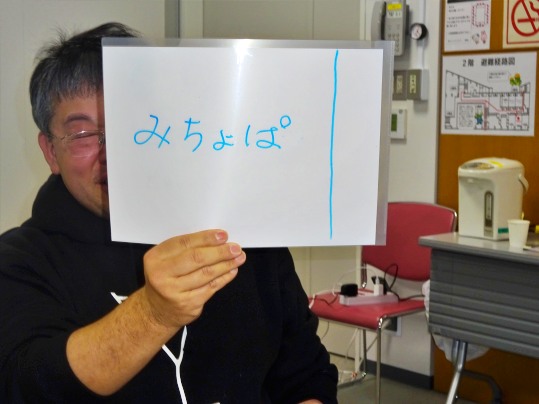 みちょぱ
2階 避難経路図